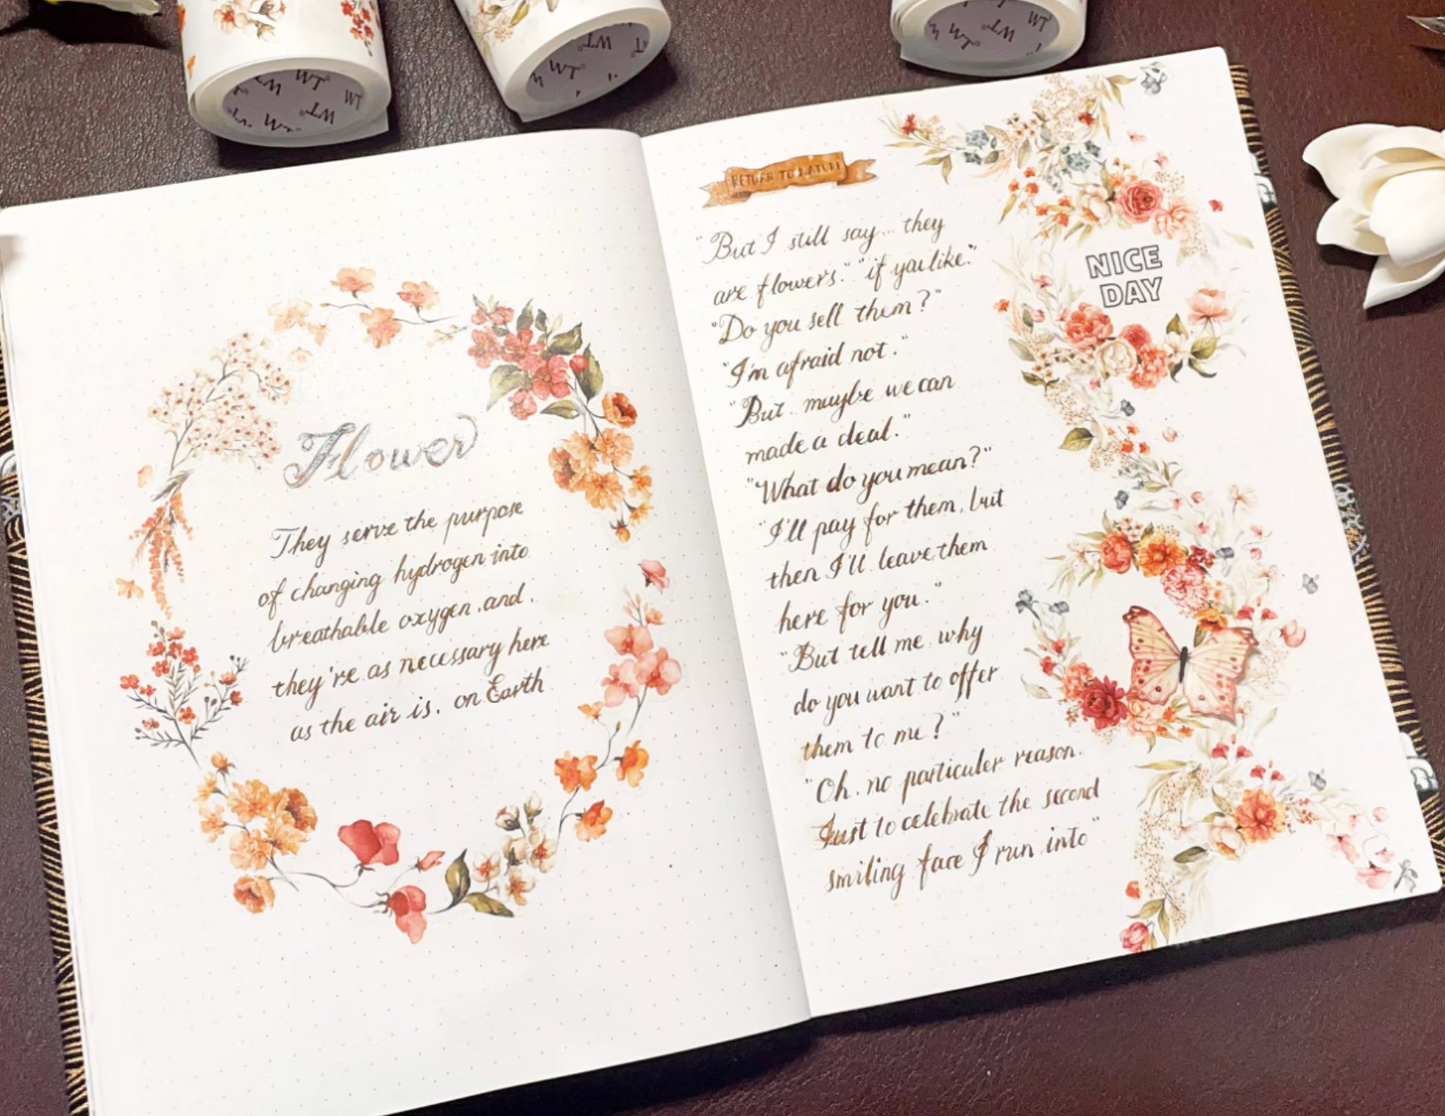 WT
WT
WT
WT
WT
WT
WT
WT
Flower
They serve the purpose
of changing hydrogen into
breathable oxygen, and.
they're as necessary here
as the air is. on Earth
RETURN TO NATURE
"But I still say... they
are flowers." "if you like."
"Do you sell them?"
"I'm afraid not."
"But. maybe we can
made a deal."
"What do you mean?"
"I'll pay for them, but
then I'll leave them
here for you."
"But tell me, why
do you want to offer
them to me?"
"Oh. no particuler reason.
Just to celebrate the second
smiling face I run into"
NICE
DAY